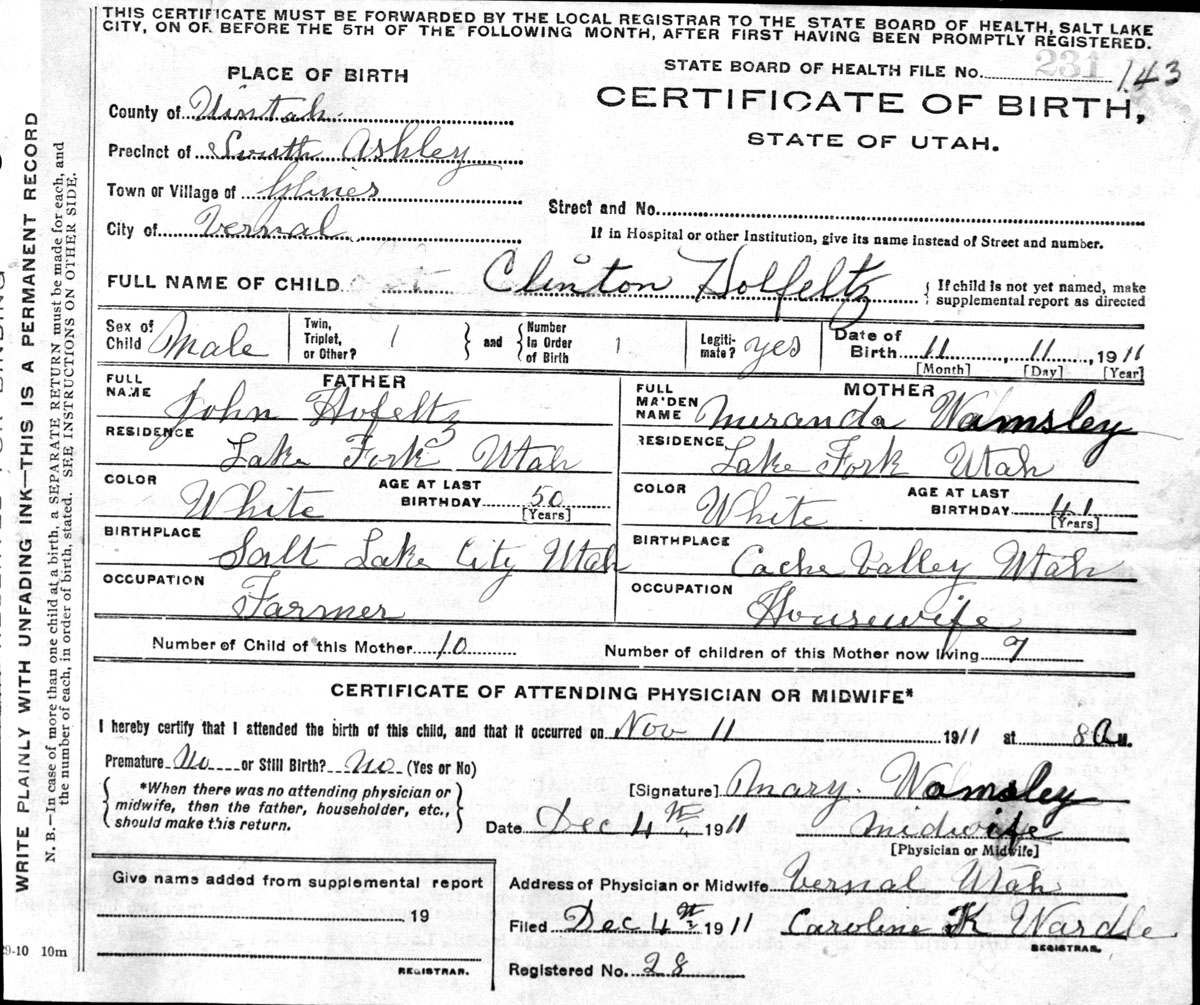 THIS CERTIFICATE MUST BE FORWARDED BY THE LOCAL REGISTRAR TO THE STATE BOARD OF HEALTH, SALT LAKE
CITY, ON OR BEFORE THE 5TH OF THE FOLLOWING MONTH, AFTER FIRST HAVING BEEN PROMPTLY REGISTERED.
STATE BOARD OF HEALTH FILE No. 231 143
PLACE OF BIRTH
CERTIFICATE OF BIRTH,
STATE OF UTAH.
County of Uintah
Precinct of South Ashley
Town or Village of Glines
Street and No.
City of Vernal
If in Hospital or other Institution, give its name instead of Street and number.
FULL NAME OF CHILD Clinton Holfeltz
{ If child is not yet named, make
supplemental report as directed
Sex of Child Male
Twin, Triplet, or Other? 1 } and { Number In Order of Birth 1
Legiti-mate? yes
Date of Birth 11, 11, 1911
[Month] [Day] [Year]
FATHER
FULL NAME John Hofeltz
RESIDENCE Lake Fork Utah
COLOR White AGE AT LAST BIRTHDAY 50 [Years]
BIRTHPLACE Salt Lake City Utah
OCCUPATION Farmer
MOTHER
FULL MAIDEN NAME Muranda Wamsley
RESIDENCE Lake Fork Utah
COLOR White AGE AT LAST BIRTHDAY 41 [Years]
BIRTHPLACE Cache Valley Utah
OCCUPATION Housewife
Number of Child of this Mother 10 Number of children of this Mother now living 9
CERTIFICATE OF ATTENDING PHYSICIAN OR MIDWIFE*
I hereby certify that I attended the birth of this child, and that it occurred on Nov 11 1911 at 8 A M.
Premature No or Still Birth? No (Yes or No)
{ *When there was no attending physician or
midwife, then the father, householder, etc.,
should make this return. }
[Signature] Mary. Wamsley
Date Dec 4th 1911 Midwife
[Physician or Midwife]
Give name added from supplemental report
19
REGISTRAR.
Address of Physician or Midwife Vernal Utah
Filed Dec 4th 1911 Caroline K Wardle
REGISTRAR.
Registered No. 28
WRITE PLAINLY WITH UNFADING INK—THIS IS A PERMANENT RECORD
N. B.—In case of more than one child at a birth, a SEPARATE RETURN must be made for each, and
the number of each, in order of birth, stated. SEE INSTRUCTIONS ON OTHER SIDE.
29-10 10m